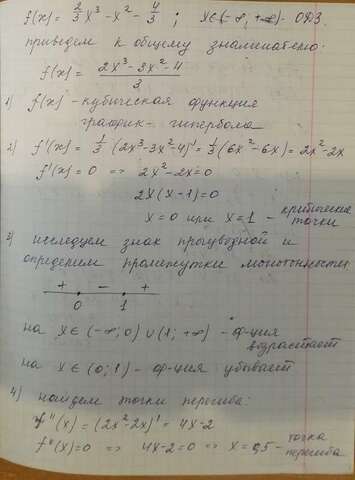 f(x) = 2/3 x³ - x² - 4/3 ; x∈(-∞; +∞) - ОДЗ.
приведем к общему знаменателю:
f(x) = (2x³ - 3x² - 4)/3
1) f(x) - кубическая функция
график - гипербола
2) f'(x) = 1/3 (2x³-3x²-4)' = 1/3 (6x²-6x) = 2x²-2x
f'(x) = 0 => 2x²-2x=0
2x(x-1)=0
x=0 или x=1 - критические точки
3) исследуем знак производной и
определим промежутки монотонности
+ - +
0 1
на x∈(-∞;0) ∪ (1; +∞) - ф-ция
возрастает
на x∈(0;1) - ф-ция убывает
4) найдем точки перегиба:
f''(x) = (2x²-2x)' = 4x-2
f''(x)=0 => 4x-2=0 => x=0,5 - точка перегиба